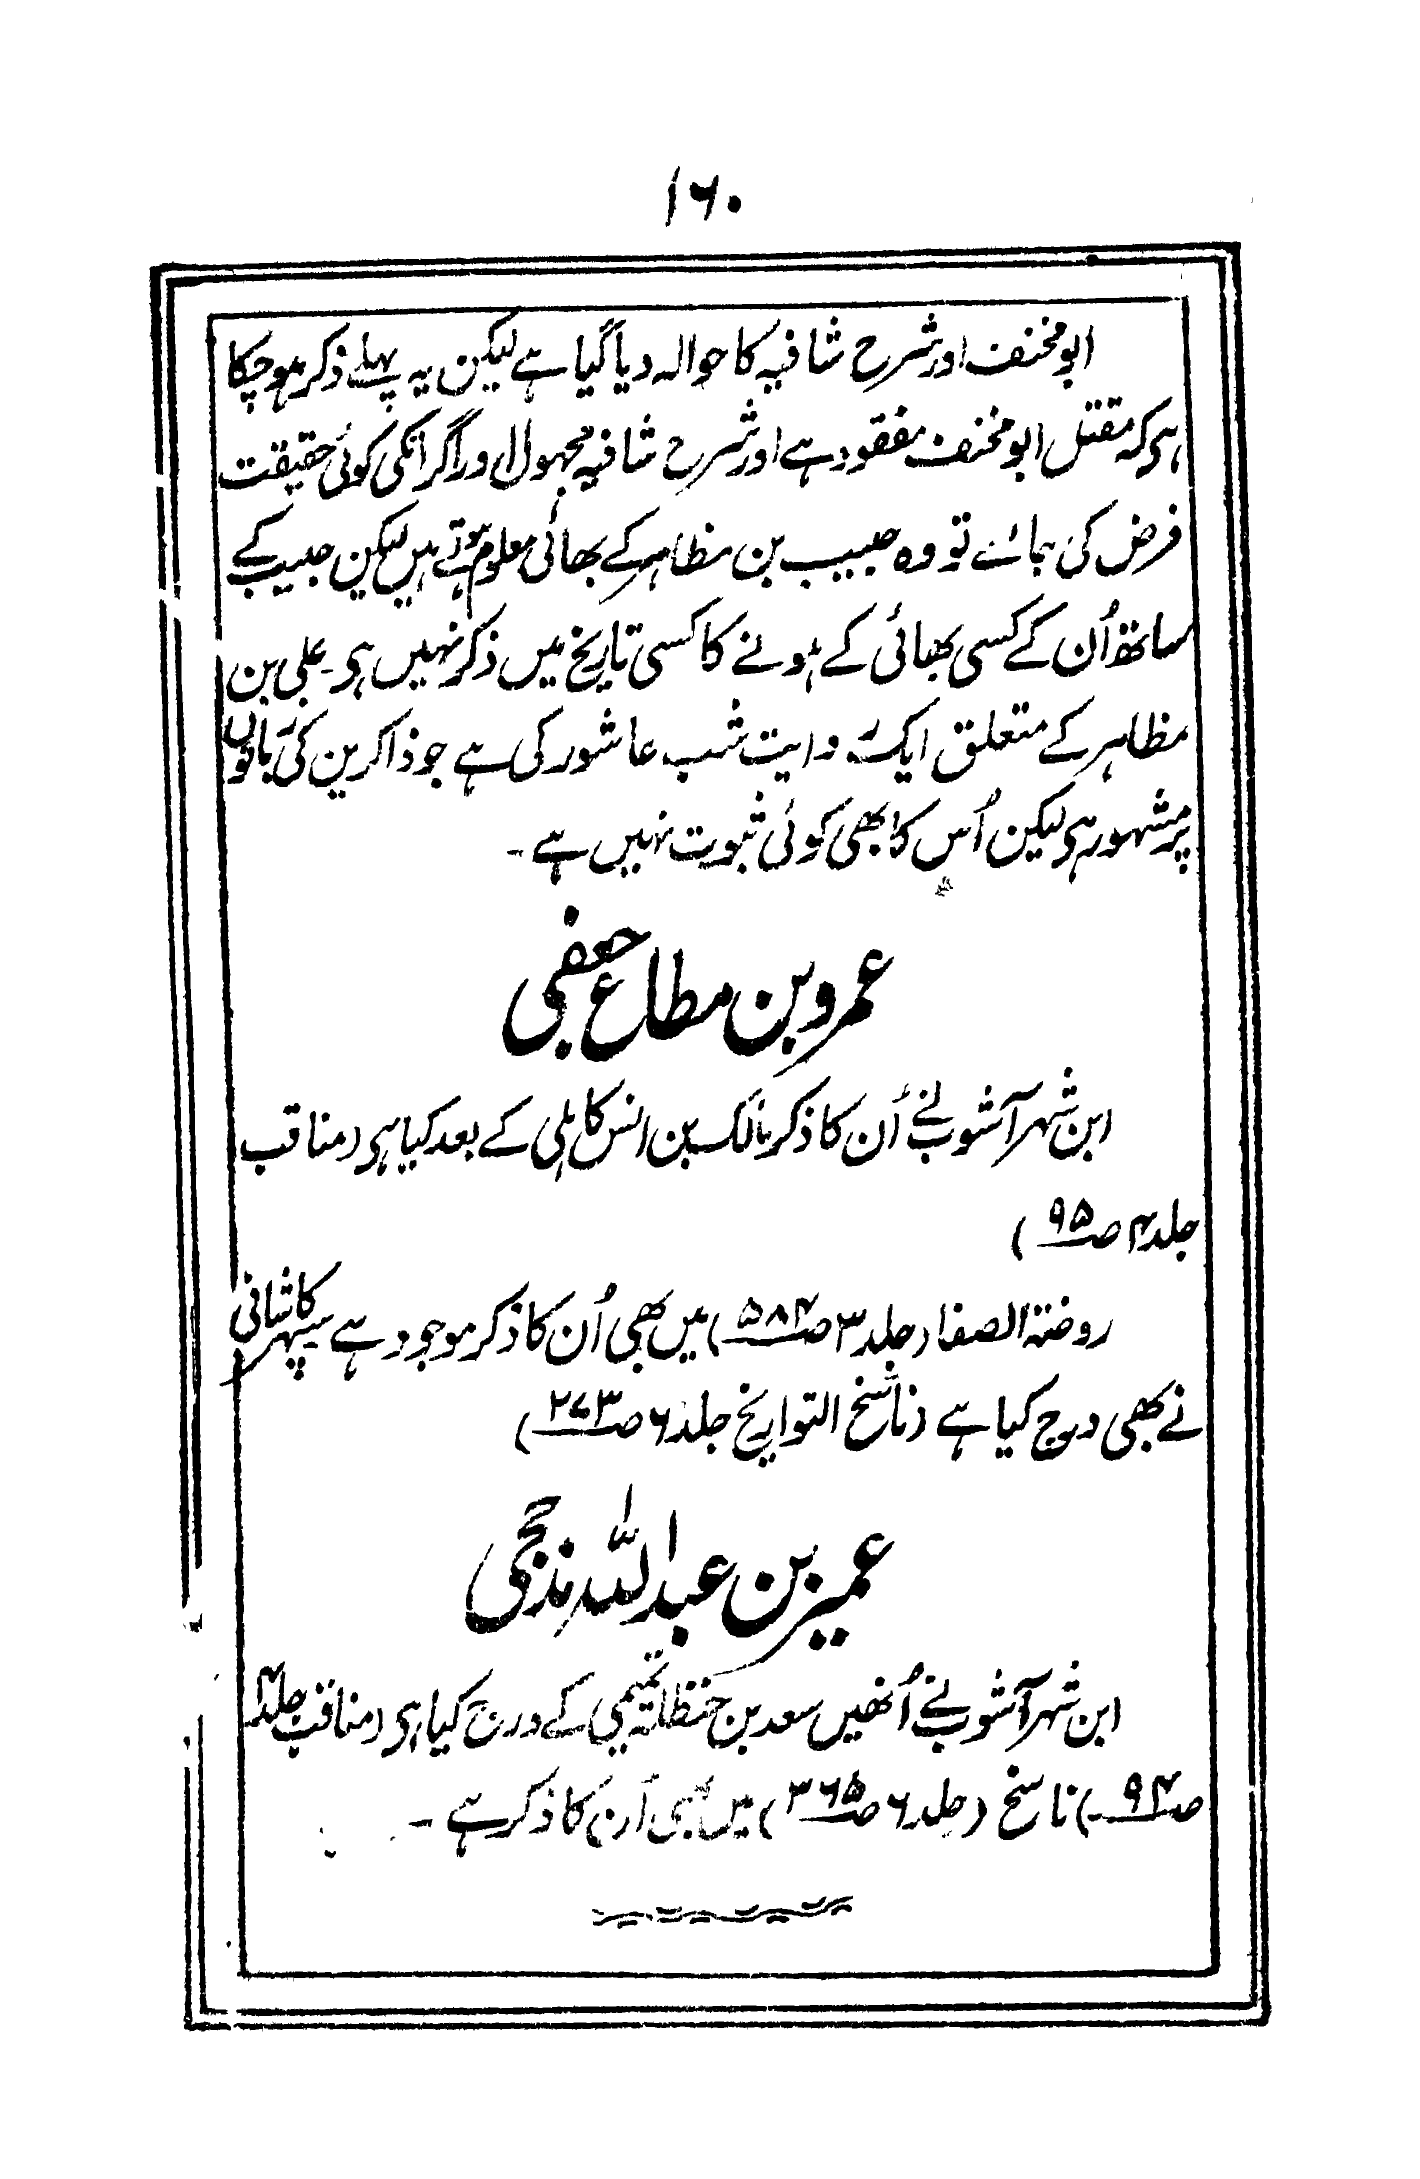 ۱۶۰
ابو مخنف اور شرح شافیہ کا حوالہ دیا گیا ہے لیکن یہ پہلے ذکر ہو چکا
ہی کہ مقتل ابو مخنف مفقود ہے اور شرح شافیہ مجہول اور اگر انکی کوئی حقیقت
فرض کی جائے تو وہ حبیب بن مظاہر کے بھائی معلوم ہوتے ہیں لیکن حبیب کے
ساتھ اُن کے کسی بھائی کے ہونے کا کسی تاریخ میں ذکر نہیں ہی۔ علی بن
مظاہر کے متعلق ایک روایت شب عاشور کی ہے جو ذاکرین کی زبانوں
پر مشہور ہی لیکن اُس کا بھی کوئی ثبوت نہیں ہے۔
عمرو بن مطاع جعفی
ابن شہر آشوب نے اُن کا ذکر مالک بن انس کاہلی کے بعد کیا ہی (مناقب
جلد ۴ ص ۹۵)
روضۃ الصفا (جلد ۳ ص ۵۸۴) میں بھی اُن کا ذکر موجود ہے سپہر کاشانی
نے بھی درج کیا ہے (ناسخ التواریخ جلد ۶ ص ۲۷۳)
عمیر بن عبداللہ مذحجی
ابن شہر آشوب نے اُنھیں سعد بن حنظلہ تمیمی کے درج کیا ہی (مناقب جلد ۴
ص ۹۴۔) ناسخ (جلد ۶ ص ۳۶۵) میں بھی اُن کا ذکر ہے۔